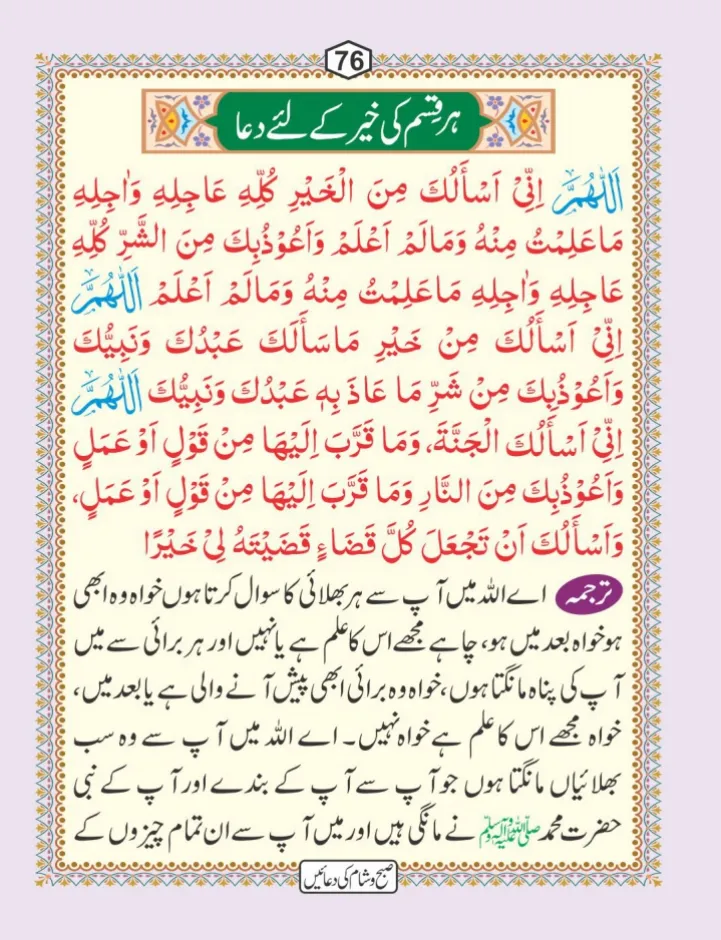 76
ہر قِسم کی خیر کے لئے دعا
اَللّٰهُمَّ اِنِّیْ اَسْأَلُكَ مِنَ الْخَيْرِ كُلِّهِ عَاجِلِهِ وَاٰجِلِهِ
مَاعَلِمْتُ مِنْهُ وَمَالَمْ اَعْلَمْ وَاَعُوْذُبِكَ مِنَ الشَّرِّ كُلِّهِ
عَاجِلِهِ وَاٰجِلِهِ مَاعَلِمْتُ مِنْهُ وَمَالَمْ اَعْلَمْ اَللّٰهُمَّ
اِنِّیْ اَسْأَلُكَ مِنْ خَيْرِ مَاسَأَلَكَ عَبْدُكَ وَنَبِيُّكَ
وَاَعُوْذُبِكَ مِنْ شَرِّ مَا عَاذَ بِهٖ عَبْدُكَ وَنَبِيُّكَ اَللّٰهُمَّ
اِنِّیْ اَسْأَلُكَ الْجَنَّةَ، وَمَا قَرَّبَ اِلَيْهَا مِنْ قَوْلٍ اَوْ عَمَلٍ
وَاَعُوْذُبِكَ مِنَ النَّارِ وَمَا قَرَّبَ اِلَيْهَا مِنْ قَوْلٍ اَوْ عَمَلٍ،
وَاَسْأَلُكَ اَنْ تَجْعَلَ كُلَّ قَضَاءٍ قَضَيْتَهُ لِیْ خَيْرًا
ترجمہ اے اللہ میں آپ سے ہر بھلائی کا سوال کرتا ہوں خواہ وہ ابھی
ہو خواہ بعد میں ہو، چاہے مجھے اس کا علم ہے یا نہیں اور ہر برائی سے میں
آپ کی پناہ مانگتا ہوں، خواہ وہ برائی ابھی پیش آنے والی ہے یا بعد میں،
خواہ مجھے اس کا علم ہے خواہ نہیں۔ اے اللہ میں آپ سے وہ سب
بھلائیاں مانگتا ہوں جو آپ سے آپ کے بندے اور آپ کے نبی
حضرت محمد صلی اللہ علیہ وآلہ وسلم نے مانگی ہیں اور میں آپ سے ان تمام چیزوں کے
صبح و شام کی دعائیں